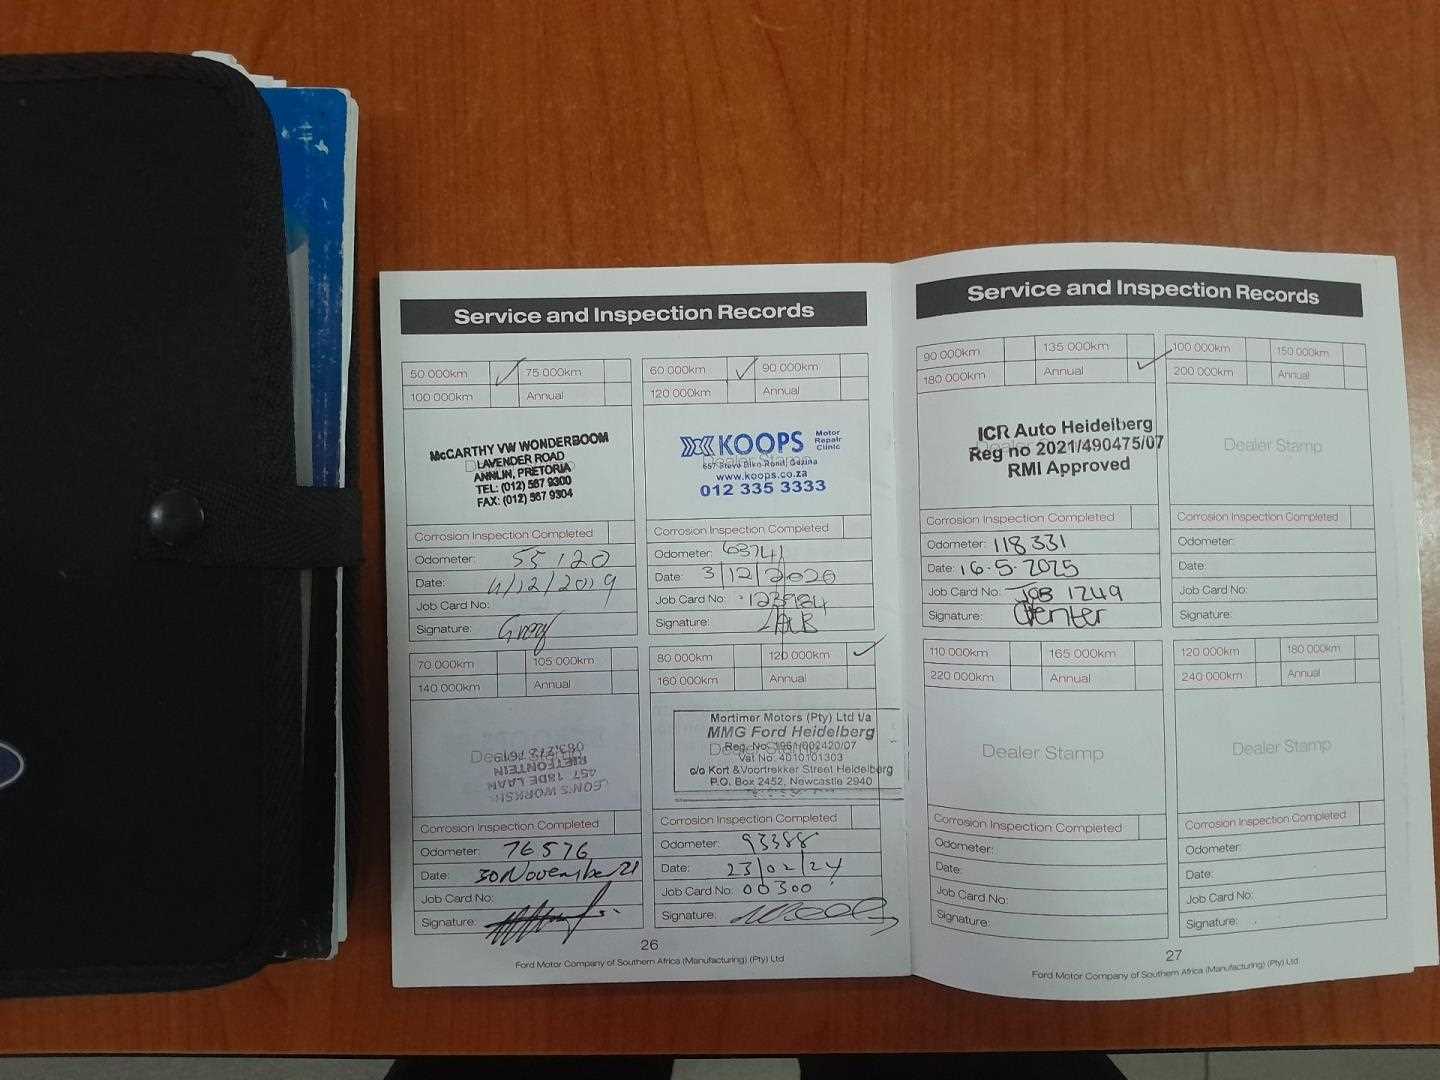 Service and Inspection Records
50 000km 75 000km
100 000km Annual
McCARTHY VW WONDERBOOM
LAVENDER ROAD
ANNLIN, PRETORIA
TEL: (012) 567 9300
FAX: (012) 567 9304
Corrosion Inspection Completed
Odometer: 55 120
Date: 11/12/2019
Job Card No:
Signature:
60 000km 90 000km
120 000km Annual
KOOPS Motor Repair Clinic
657 Steve Biko Road, Gezina
www.koops.co.za
012 335 3333
Corrosion Inspection Completed
Odometer: 63741
Date: 3/12/2020
Job Card No:
Signature:
70 000km 105 000km
140 000km Annual
Dealer Stamp
LEON'S WORKSH
457 18DE LAAN
RIETFONTEIN
Corrosion Inspection Completed
Odometer: 76576
Date: 30 November 21
Job Card No:
Signature:
80 000km 120 000km
160 000km Annual
Mortimer Motors (Pty) Ltd t/a
MMG Ford Heidelberg
Reg. No. 1951/002420/07
Vat No: 4010101303
c/o Kort & Voortrekker Street Heidelberg
P.O. Box 2452, Newcastle 2940
Corrosion Inspection Completed
Odometer: 93388
Date: 23/02/24
Job Card No: 00300
Signature:
26
Ford Motor Company of Southern Africa (Manufacturing) (Pty) Ltd
Service and Inspection Records
90 000km 135 000km
180 000km Annual
ICR Auto Heidelberg
Reg no 2021/490475/07
RMI Approved
Corrosion Inspection Completed
Odometer: 118 331
Date: 16.5.2025
Job Card No: JOB 1249
Signature: Venter
100 000km 150 000km
200 000km Annual
Dealer Stamp
Corrosion Inspection Completed
Odometer:
Date:
Job Card No:
Signature:
110 000km 165 000km
220 000km Annual
Dealer Stamp
Corrosion Inspection Completed
Odometer:
Date:
Job Card No:
Signature:
120 000km 180 000km
240 000km Annual
Dealer Stamp
Corrosion Inspection Completed
Odometer:
Date:
Job Card No:
Signature:
27
Ford Motor Company of Southern Africa (Manufacturing) (Pty) Ltd